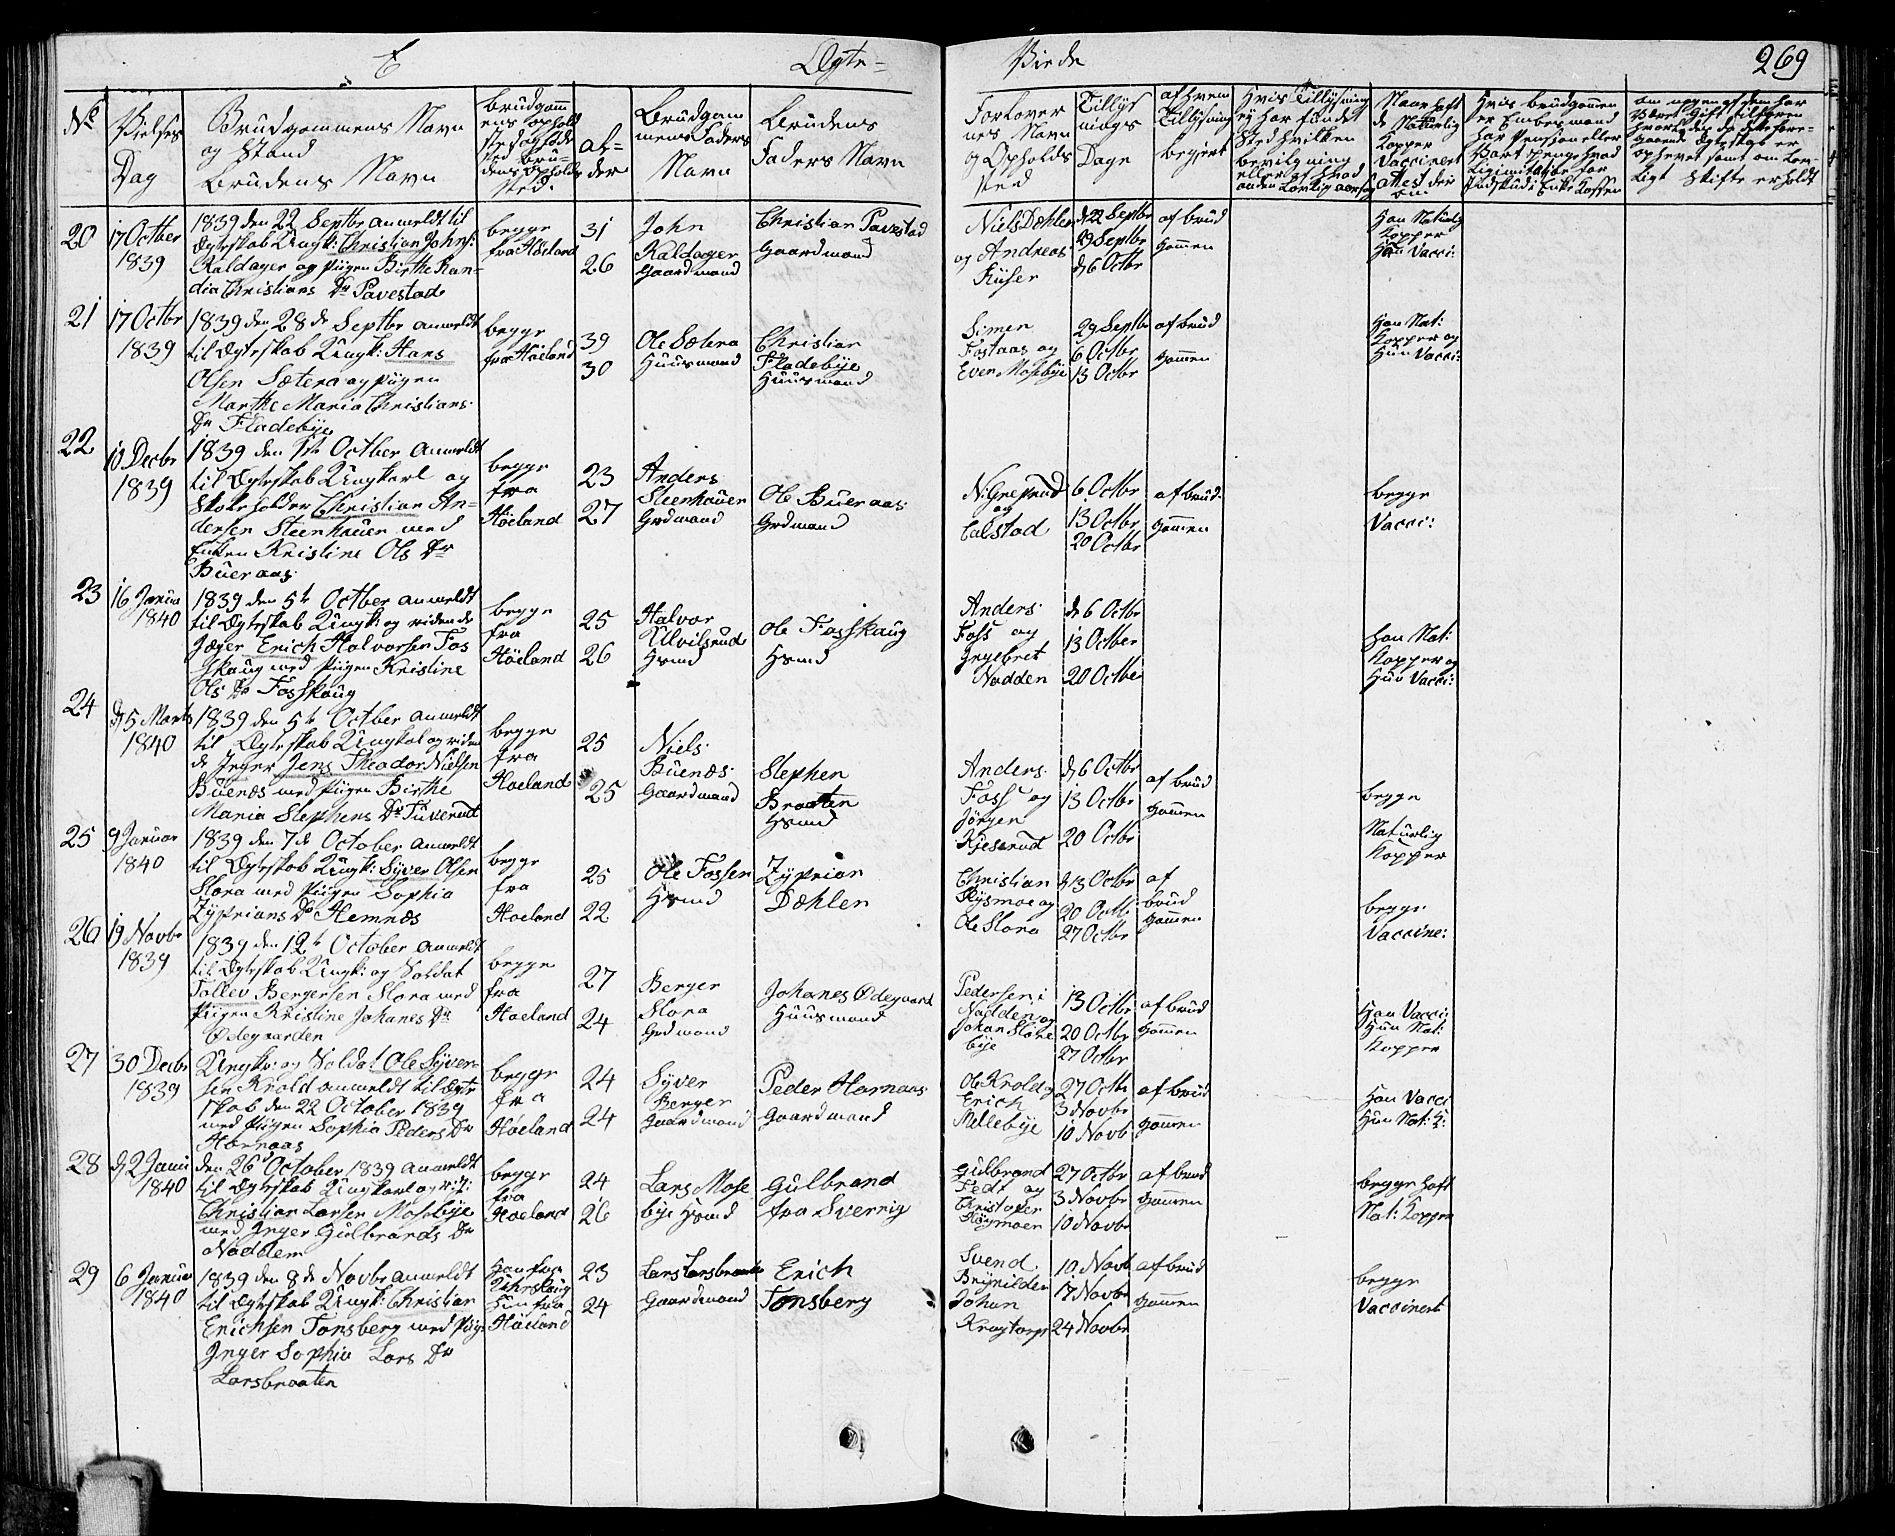 E Ægte-
Viede 269
No
Vielses
Dag
Brudgommens Navn
og Stand
Brudens Navn
Al-
der
Brudgom
mens Faders
Navn
Brudens
Faders Navn
Forlover
nes Navn
og Opholds
sted
Tillys
nings
Dage
af hvem
Tillysning
begiert
20
17 Octber
1839
1839 den 22 Septbr anmeldt til
Ægteskab Ungk: Christian Johns:
Kaldager og Piigen Birthe Ran-
dia Christians Dr Pavestad
begge
fra Höeland
31
26
John
Kaldager
Gaardmand
Christian Pavestad
Gaardmand
Niels Dæhlen
og Andreas
Riiser
d 22 Septbr
29 Septbr
d 6 Octbr
af brud
gommen
Han Naturlig
Kopper
Hun Vacci:
21
17 Octbr
1839
1839 den 28de Septbr anmeldt
til Ægteskab Ungk: Hans
Olsen Sætera og Piigen
Marthe Maria Christians
Dr Fladebÿe
begge
fra Höeland
39
30
Ole Sætera
Huusmand
Christian
Fladebÿe
Huusmand
Simen
Fostaas og
Even Mosebÿe
29 Septbr
6 Octbr
13 Octbr
af brud
gommen
Han Nat:
Kopper og
Hun Vacci:
22
10 Decbr
1839
1839 den 1te Octber anmeldt
til Ægteskab Ungkarl og
Skoleholder Christian An-
dersen Steenhauer med
Enken Kristine Ols Dr
Bueraas
begge
fra
Höeland
23
27
Anders
Steenhauer
Grdmand
Ole Bueraas
Grdmand
N: Greprud
og
Calstad
6 Octbr
13 Octbr
20 Octbr
af brud-
gommen
begge
Vacci:
23
16 Januar
1840
1839 den 5te Octber anmeldt
til Ægteskab Ungk: og ridende
Jæger Erich Halvorsen Fos
skaug med Piigen Kristine
Ols Dr Fosskaug
begge
fra
Höeland
25
26
Halvor
Ulvilsrud
Hsmd
Ole Fosskaug
Hsmd
Anders
Foss og
Ingebret
Nadden
d 6 Octbr
13 Octber
20 Octbe
Han Nat:
Kopper og
Hun Vacci:
24
d 5 Marts
1840
1839 den 5te October anmeldt
til Ægteskab Ungkal og riden
de Jeger Jens Theodor Nielsen
Buenæs med Piigen Birthe
Maria Stephens Dr Tuverud
begge
fra
Hoeland
25
25
Niels
Buenæs
Gaardmand
Stephen
Braaten
Hsmd
Anders
Foss og
Jörgen
Kjeserud
d 6 Octbr
13 Octbr
20 Octbr
af brud
gommen
begge
Naturlig
Kopper
25
9 Januar
1840
1839 den 7de October anmeldt
til Ægteskab Ungk: Syver Olsen
Slora med Piigen Sophia
Zyprians Dr Hemnæs
begge
fra
Hoeland
25
22
Ole Fossen
Hsmd
Zyprian
Dæhlen
Christian
Rysmoe og
Ole Slora
d 13 Octbr
20 Octb
27 Octbr
af
brud
gommen
begge
Vaccine:
26
19 Novbr
1839
1839 den 12te October anmeldt
til Ægteskab Ungk: og Soldat
Tollev Bergersen Slora med
Piigen Kristine Johanes Dr
Ödegaarden
begge
fra
Hoeland
27
24
Berger
Slora
Grdmand
Johanes Ödegaard
Huusmand
Pedersen i
Nadden og
Johan Slore
bÿe
13 Octbr
20 Octbr
27 Octbr
af brud
gommen
Han Vacci:
Hun Nat:
Kopper
27
30 Decbr
1839
Ungk: og Soldat Ole Syver-
sen Krold anmeldt til Ægte
skab den 22 October 1839
med Piigen Sophia Peders Dr
Harnaas
begge
fra
Höeland
24
24
Syver
Berger
Gaardmand
Peder Harnaas
Gaardmand
Ole Krold og
Erich
Mellebÿe
27 Octb
3 Novbr
10 Novb
af brud
gommen
Han Vacci
Hun Nat: K:
28
d 2 Janu
1840
den 26d October 1839 anmeldt
til Ægteskab Ungkarl og
Christian Larsen Mosebÿe
med Inger Gulbrands Dr
Naddem
begge
fra
Hoeland
24
26
Lars Mose
bÿe Hsmd
Gulbrand
fra Sverrig
Gulbrand
Fedt og
Christofer
Höymoen
27 Octbr
3 Novbr
10 Novbr
af brud
gommen
begge haft
Nat: Kopper
29
6 Januar
1840
1839 den 8de Novbr anmeldt
til Ægteskab Ungk: Christian
Erichsen Tonsberg med Piige
Inger Sophia Lars Dr
Larsbraaten
Han fra
Uhrskoug
Hun fra
Höeland
23
24
Lars Larsbraate
Gaardmand
Erich
Tonsberg
Svend
Brynilden
Johan
Krogtorp
10 Novb
17 Novbr
24 Novbr
af brud
gommen
begge
Vaccinert